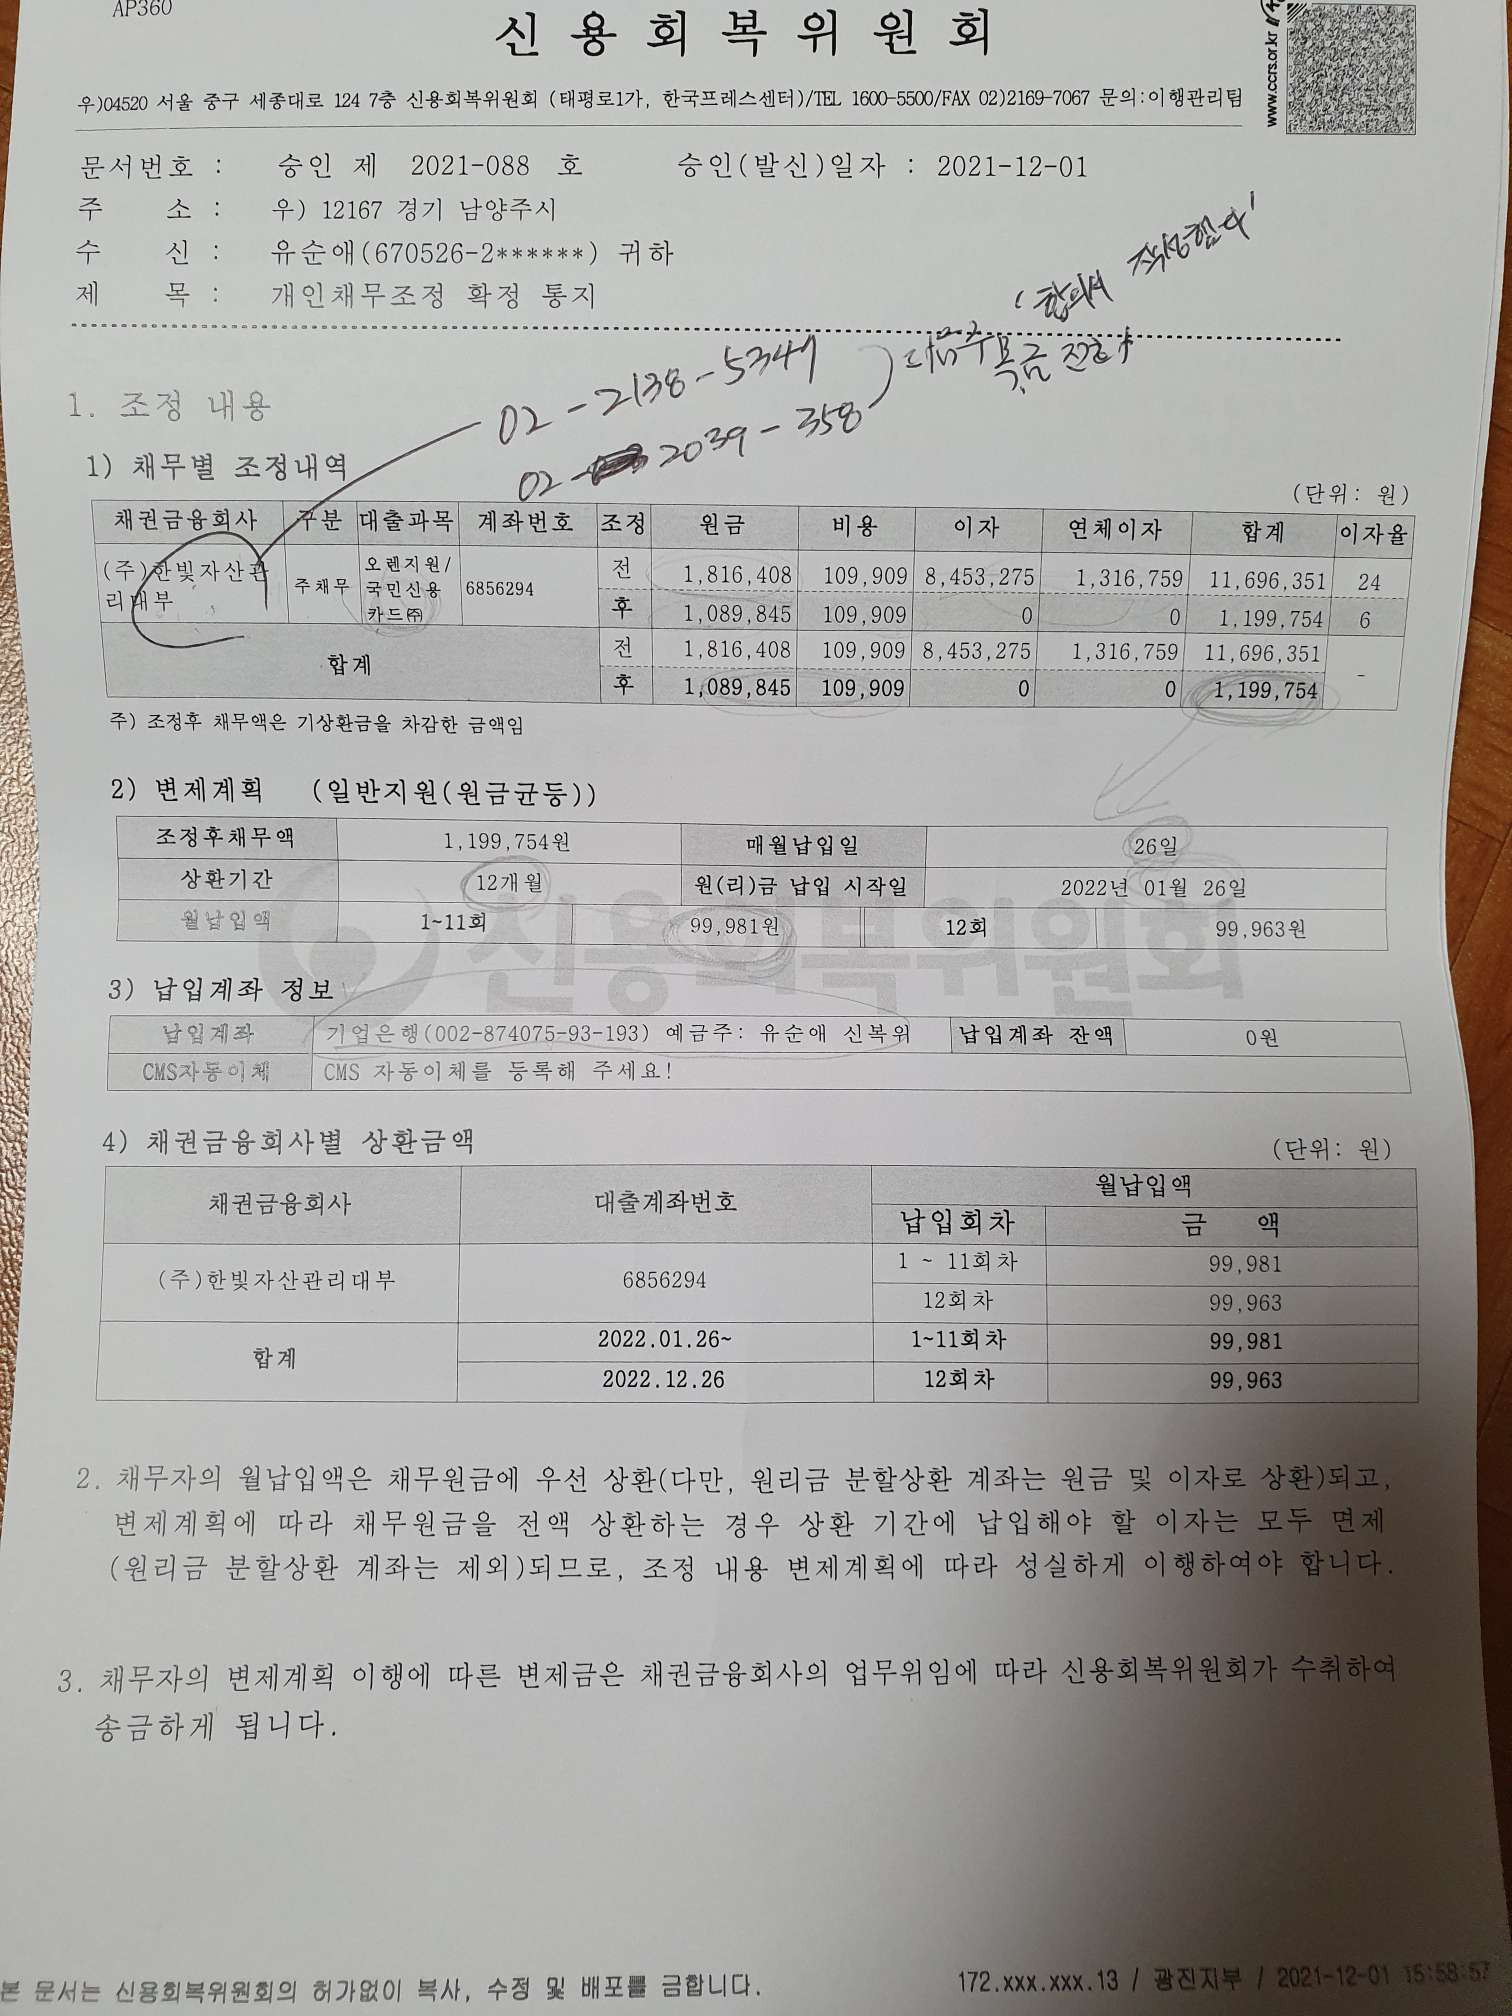 AP360
신용회복위원회
www.ccrs.or.kr
우)04520 서울 중구 세종대로 124 7층 신용회복위원회 (태평로1가, 한국프레스센터)/TEL 1600-5500/FAX 02)2169-7067 문의:이행관리팀
문서번호 : 승인 제 2021-088 호 승인(발신)일자 : 2021-12-01
주 소 : 우) 12167 경기 남양주시
수 신 : 유순애(670526-2******) 귀하
제 목 : 개인채무조정 확정 통지
합의서 작성했다
02-2138-5347
다음주 목금 전화
02-2039-358
1. 조정 내용
1) 채무별 조정내역
(단위: 원)
채권금융회사 구분 대출과목 계좌번호 조정 원금 비용 이자 연체이자 합계 이자율
(주)한빛자산관리대부 주채무 오렌지원/국민신용카드㈜ 6856294 전 1,816,408 109,909 8,453,275 1,316,759 11,696,351 24
후 1,089,845 109,909 0 0 1,199,754 6
합계 전 1,816,408 109,909 8,453,275 1,316,759 11,696,351 -
후 1,089,845 109,909 0 0 1,199,754
주) 조정후 채무액은 기상환금을 차감한 금액임
2) 변제계획 (일반지원(원금균등))
조정후채무액 1,199,754원 매월납입일 26일
상환기간 12개월 원(리)금 납입 시작일 2022년 01월 26일
월납입액 1~11회 99,981원 12회 99,963원
신용회복위원회
3) 납입계좌 정보
납입계좌 기업은행(002-874075-93-193) 예금주: 유순애 신복위 납입계좌 잔액 0원
CMS자동이체 CMS 자동이체를 등록해 주세요!
4) 채권금융회사별 상환금액
(단위: 원)
채권금융회사 대출계좌번호 월납입액
납입회차 금 액
(주)한빛자산관리대부 6856294 1 ~ 11회차 99,981
12회차 99,963
합계 2022.01.26~ 1~11회차 99,981
2022.12.26 12회차 99,963
2. 채무자의 월납입액은 채무원금에 우선 상환(다만, 원리금 분할상환 계좌는 원금 및 이자로 상환)되고,
변제계획에 따라 채무원금을 전액 상환하는 경우 상환 기간에 납입해야 할 이자는 모두 면제
(원리금 분할상환 계좌는 제외)되므로, 조정 내용 변제계획에 따라 성실하게 이행하여야 합니다.
3. 채무자의 변제계획 이행에 따른 변제금은 채권금융회사의 업무위임에 따라 신용회복위원회가 수취하여
송금하게 됩니다.
본 문서는 신용회복위원회의 허가없이 복사, 수정 및 배포를 금합니다.
172.xxx.xxx.13 / 광진지부 / 2021-12-01 15:58:57